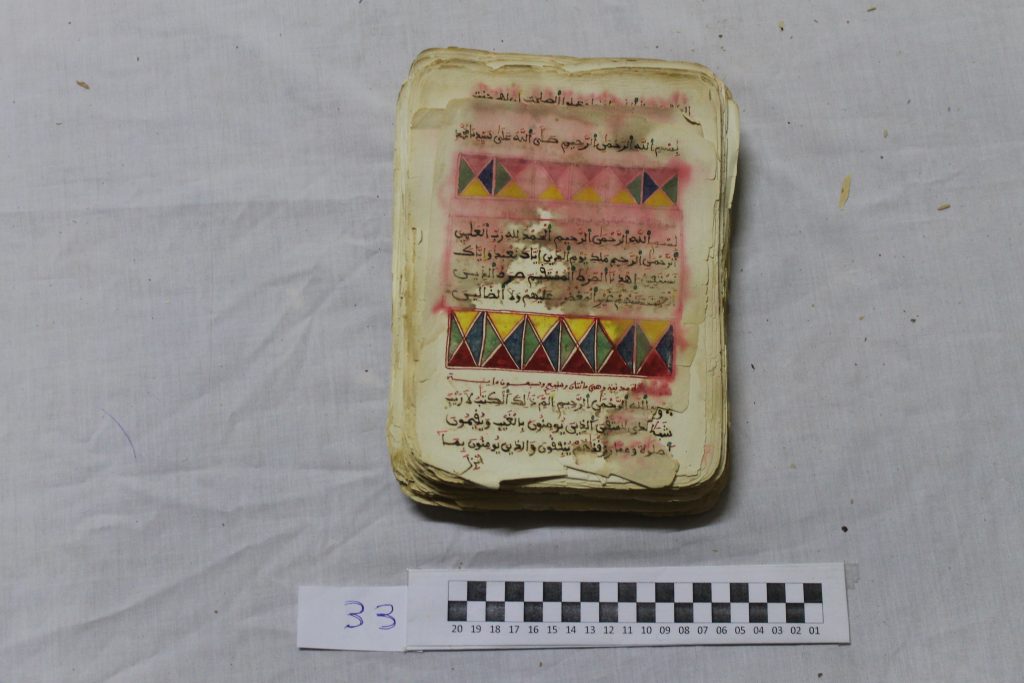 بسم الله الرحمن الرحيم صلى الله على سيدنا محمد
بسم الله الرحمن الرحيم الحمد لله رب العلمين
الرحمن الرحيم ملك يوم الدين إياك نعبد وإياك
نستعين إهدنا الصرط المستقيم صرط الذين
عليهم غير المغضوب عليهم ولا الضالين
مدنية وهي مائتان
الله الرحمن الرحيم الم ذلك الكتب لا ريب
للمتقين الذين يومنون بالغيب ويقيمون
الصلوة ومما رزقنهم ينفقون والذين يومنون بما
أنزل
33
20 19 18 17 16 15 14 13 12 11 10 09 08 07 06 05 04 03 02 01